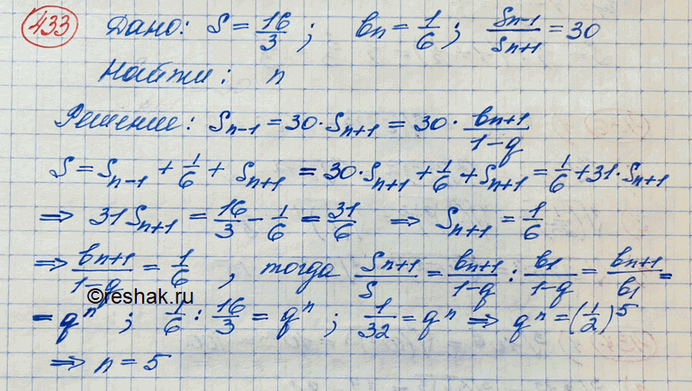 433 Дано: S = 16/3 ; bn = 1/6 ; Sn-1/Sn+1 = 30
Найти: n
Решение: Sn-1 = 30 · Sn+1 = 30 · bn+1/1-q
S = Sn-1 + 1/6 + Sn+1 = 30 · Sn+1 + 1/6 + Sn+1 = 1/6 + 31 · Sn+1
⇒ 31 Sn+1 = 16/3 - 1/6 = 31/6 ⇒ Sn+1 = 1/6
⇒ bn+1/1-q = 1/6 , тогда Sn+1/S = bn+1/1-q : b1/1-q = bn+1/b1 =
©reshak.ru
= qⁿ ; 1/6 : 16/3 = qⁿ ; 1/32 = qⁿ ⇒ qⁿ = (1/2)⁵
⇒ n = 5